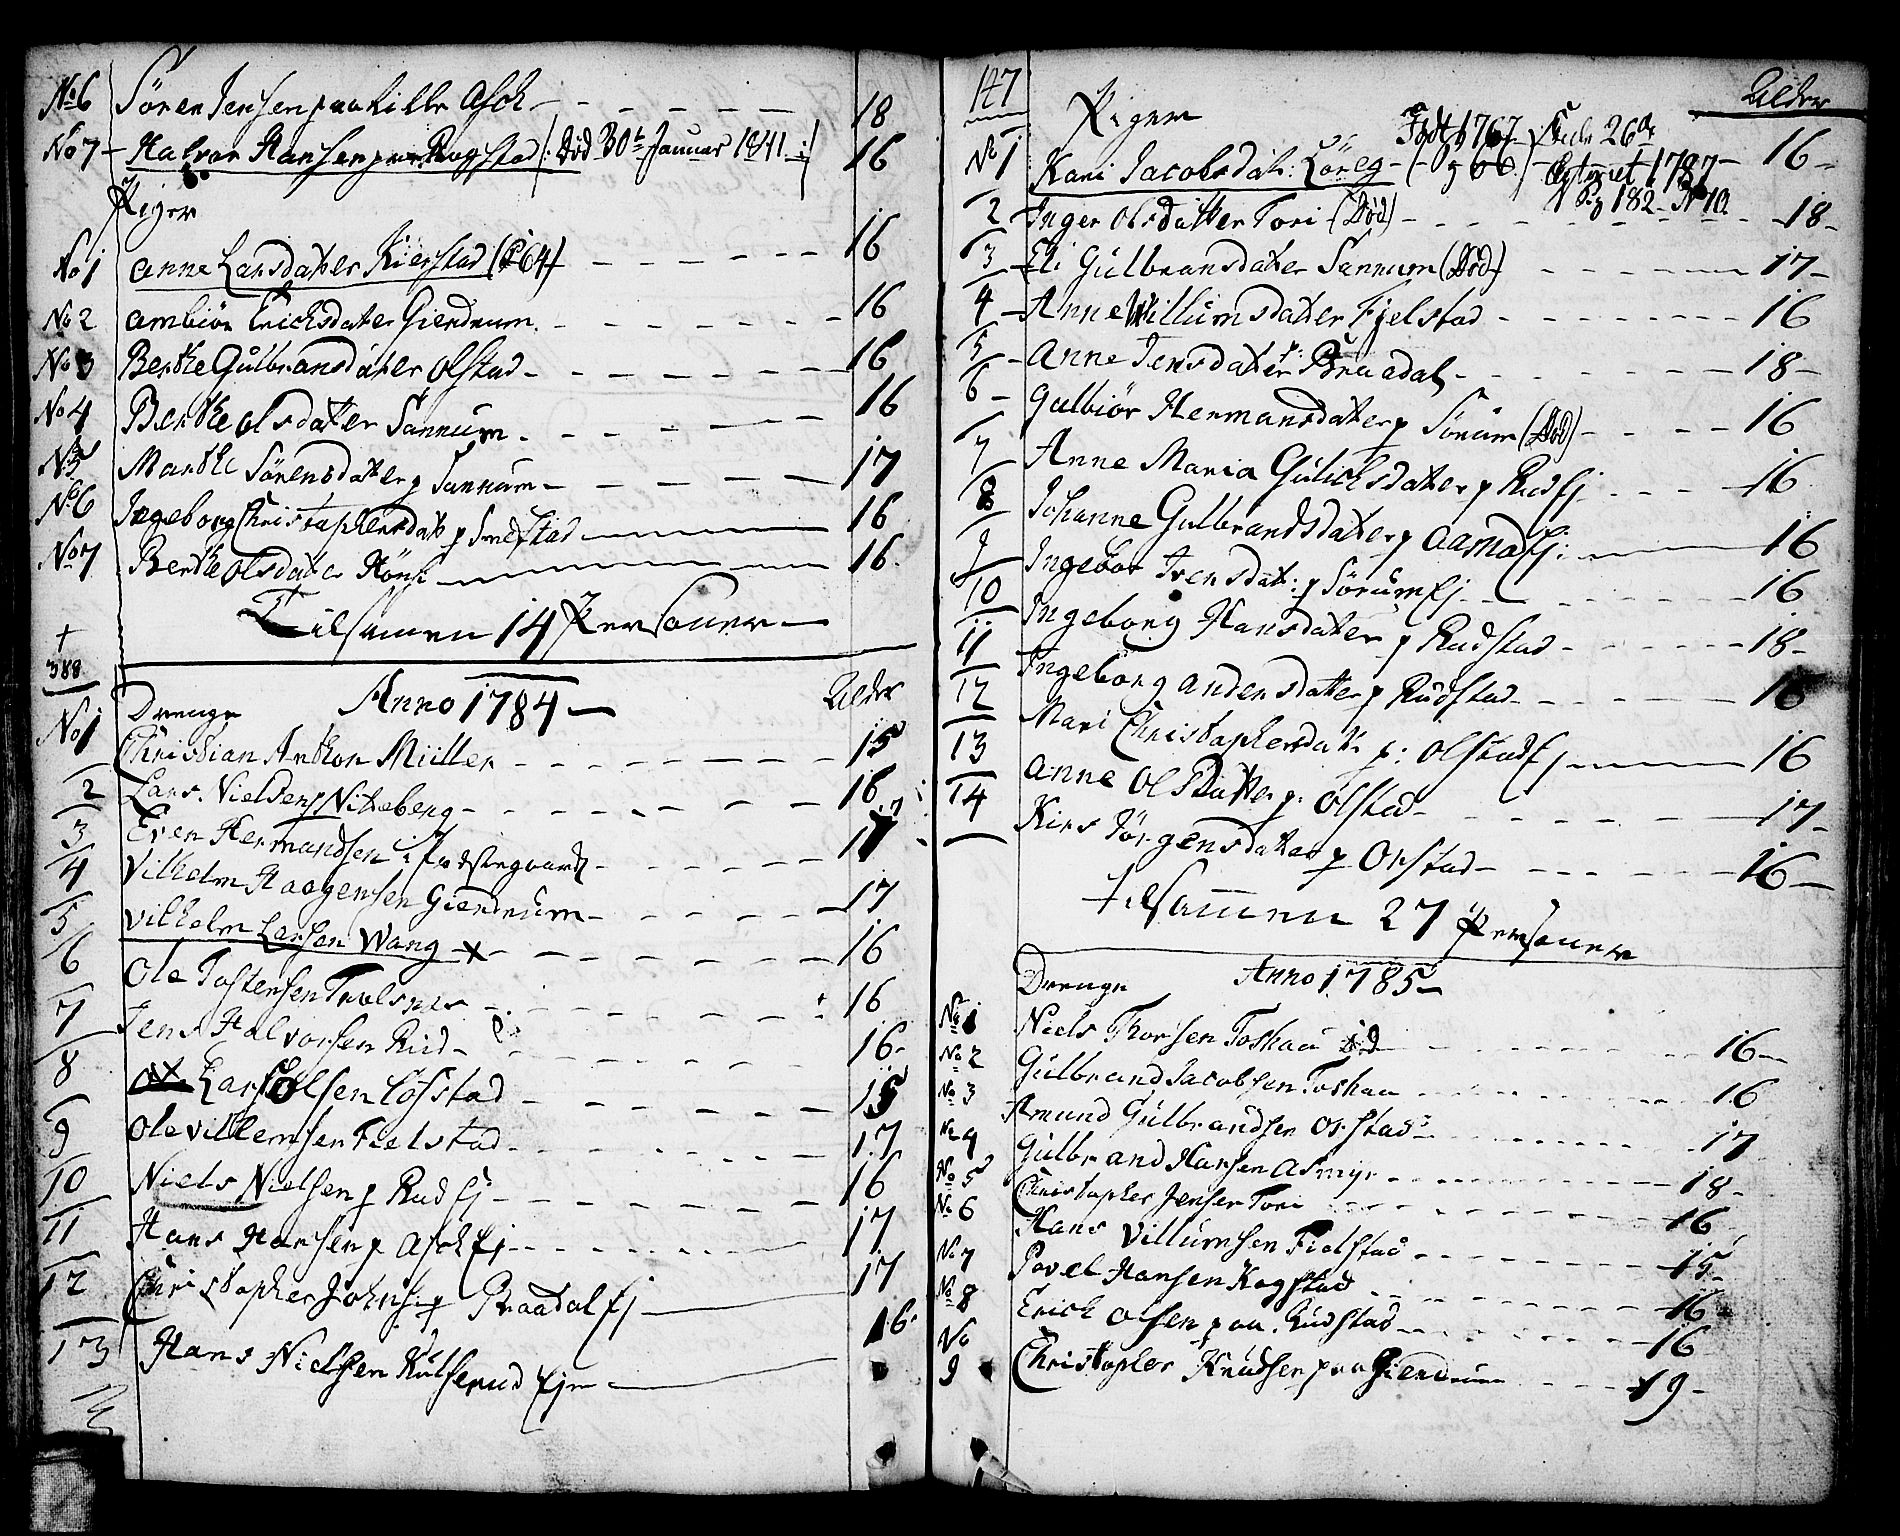 No 6 Sören Jensen paa Lille Asch 18
No 7 Halvor Hansen paa Rogstad (: Död 30te Januar 1841 :) 16
Piger
No 1 Anne Larsdatter Kierstad (P 64) 16
No 2 Ambiör Erichsdatter Gierdrum 16
No 3 Berthe Gulbransdater Olstad 16
No 4 Berthe Olsdater Sannum 16
No 5 Marthe Sörensdatter p Sannum 17
No 6 Ingeborg Christophersdat p Smestad 16
No 7 Berthe Olsdater Höni 16
Tilsamen 14 Personer
388
Anno 1784
Drenge Alder
No 1 Christian Anthon Müller 15
2 Lars Nielsen p Nitteberg 16
3 Even Hermandsen i Præstegaards 17
4 Vilhelm Haagensen Gierdrum 17
5 Vilhelm Larsen Wang x 16
6 Ole Tostensen Trulsrud 16
7 Jens Halvorsen Rud 16
8 Lars Olsen Löfstad 15
9 Ole Villemsen Fielstad 17
10 Niels Nielsen p Rud Ej 16
11 Hans Hansen p Asch Ej 17
12 Christopher Johns: p Braadal Ej 17
13 Hans Nielsen Kulserud Ejer 16
147
Piger Alder
Födt 1767 Side 26
No 1 Kari Jacobsdat: Löreg (Pg 66) 16
Copuleret 1787
Pag 182 No 10
2 Inger Olsdatter Tori (Död) 18
3 Eli Gulbransdater Sannum (Död) 17
4 Anne Willumsdatter Fjelstad 16
5 Anne Jensdatter p: Braadal 18
6 Gulbiör Hermansdater p Sörum (Död) 16
7 Anne Maria Gulichsdater p Rud Ej 16
8 Johanne Gulbrandsdater p Aamot Ej: 16
9 Ingebor Iversdat: p Sörum Ej 16
10 Ingeborg Hansdater p Rudstad 18
11 Ingeborg Andersdatter p Rudstad 16
12 Mari Christophersdatt p: Olstad Ej 16
13 Anne Ols Datter p: Olstad 17
14 Kirs Jörgensdater p Orstad 16
tilsammen 27 Personer
Drenge Anno 1785
No 1 Niels Thorsen Toskau 16
No 2 Gulbrand Jacobsen Toskau 16
No 3 Amund Gulbrandsen Orstad 17
No 4 Gulbrand Hansen Asmyr 18
No 5 Christopher Jensen Tori 16
No 6 Hans Villumsen Fielstad 15
No 7 Povel Hansen Rogstad 16
No 8 Erich Olsen paa Rudstad 16
No 9 Christopher Knudsen paa Gierdrum 19